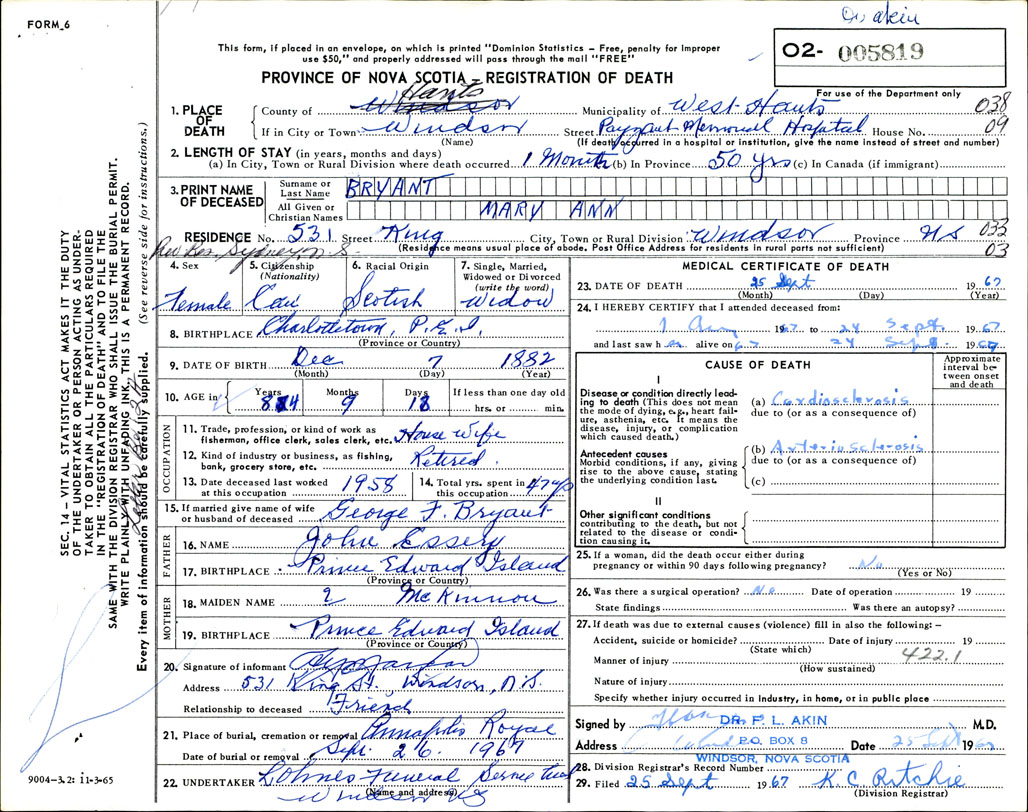 FORM 6
Dr. Akin
This form, if placed in an envelope, on which is printed "Dominion Statistics – Free, penalty for improper
use $50," and properly addressed will pass through the mail "FREE"
02- 005819
PROVINCE OF NOVA SCOTIA – REGISTRATION OF DEATH
For use of the Department only
1. PLACE OF DEATH
County of Windsor Hants Municipality of West Hants 038
If in City or Town Windsor Street Payzant Memorial Hospital House No. 09
(Name) (If death occurred in a hospital or institution, give the name instead of street and number)
2. LENGTH OF STAY (in years, months and days)
(a) In City, Town or Rural Division where death occurred 1 Month (b) In Province 50 yrs (c) In Canada (if immigrant)
3. PRINT NAME OF DECEASED
Surname or Last Name BRYANT
All Given or Christian Names MARY ANN
RESIDENCE No. 531 Street King City, Town or Rural Division Windsor Province NS 032
(Residence means usual place of abode. Post Office Address for residents in rural parts not sufficient) 03
Sydney N.S.
4. Sex Female
5. Citizenship (Nationality) Can
6. Racial Origin Scotish
7. Single, Married, Widowed or Divorced (write the word) Widow
8. BIRTHPLACE Charlottetown, P.E.I.
(Province or Country)
9. DATE OF BIRTH Dec 7 1882
(Month) (Day) (Year)
10. AGE in Years 84 Months 9 Days 18 If less than one day
hrs. or min.
OCCUPATION
11. Trade, profession, or kind of work as fisherman, office clerk, sales clerk, etc. House Wife
12. Kind of industry or business, as fishing, bank, grocery store, etc. Retired
13. Date deceased last worked at this occupation 1958
14. Total yrs. spent in this occupation 47 yrs
15. If married give name of wife or husband of deceased George F. Bryant
FATHER
16. NAME John Essery
17. BIRTHPLACE Prince Edward Island
(Province or Country)
MOTHER
18. MAIDEN NAME ? McKinnon
19. BIRTHPLACE Prince Edward Island
(Province or Country)
20. Signature of informant
Address 531 King St., Windsor, N.S.
Relationship to deceased Friend
21. Place of burial, cremation or removal Annapolis Royal
Date of burial or removal Sept. 26. 1967
22. UNDERTAKER Lohnes Funeral Service
(Name and address)
Windsor NS
MEDICAL CERTIFICATE OF DEATH
23. DATE OF DEATH 25 Sept 1967
(Month) (Day) (Year)
24. I HEREBY CERTIFY that I attended deceased from:
1 Aug 1967 to 24 Sept. 1967
and last saw her alive on 24 Sept 1967
CAUSE OF DEATH
Approximate interval between onset and death
I
Disease or condition directly leading to death (This does not mean the mode of dying, e.g., heart failure, asthenia, etc. It means the disease, injury, or complication which caused death.)
(a) Cardiosclerosis
due to (or as a consequence of)
Antecedent causes
Morbid conditions, if any, giving rise to the above cause, stating the underlying condition last.
(b) Arteriosclerosis
due to (or as a consequence of)
(c)
II
Other significant conditions contributing to the death, but not related to the disease or condition causing it.
25. If a woman, did the death occur either during
pregnancy or within 90 days following pregnancy? No
(Yes or No)
26. Was there a surgical operation? No Date of operation 19
State findings Was there an autopsy?
27. If death was due to external causes (violence) fill in also the following: –
Accident, suicide or homicide? Date of injury 19
(State which) 422.1
Manner of injury
(How sustained)
Nature of injury
Specify whether injury occurred in industry, in home, or in public place
Signed by DR. F. L. AKIN M.D.
Address P.O. BOX 8 Date 25 Sept 1967
WINDSOR, NOVA SCOTIA
28. Division Registrar's Record Number
29. Filed 25 Sept 1967 K. C. Ritchie
(Division Registrar)
SEC. 14 – VITAL STATISTICS ACT MAKES IT THE DUTY
OF THE UNDERTAKER OR PERSON ACTING AS UNDER-
TAKER TO OBTAIN ALL THE PARTICULARS REQUIRED
IN THE "REGISTRATION OF DEATH" AND TO FILE THE
SAME WITH THE DIVISION REGISTRAR WHO SHALL ISSUE THE BURIAL PERMIT.
WRITE PLAINLY WITH UNFADING INK, THIS IS A PERMANENT RECORD.
Every item of information should be carefully supplied. (See reverse side for instructions.)
9004-3.2: 11-3-65